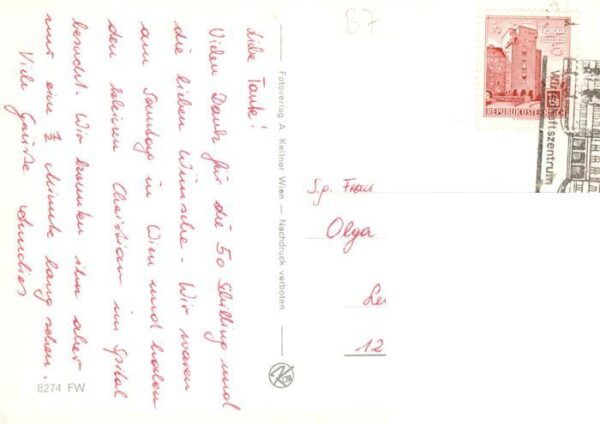 Liebe Tante!
Vielen Dank für die 50 Schilling und
die lieben Wünsche. Wir waren
am Sonntag in Wien und haben
den kleinen Christian im Spital
besucht. Wir konnten ihn aber
nur eine ½ Minute lang sehen.
Viele Grüße
8274 FW
Fotoverlag A. Kellner Wien — Nachdruck verboten
B7
REPUBLIK ÖSTERREICH
S.g. Frau
Olga
12